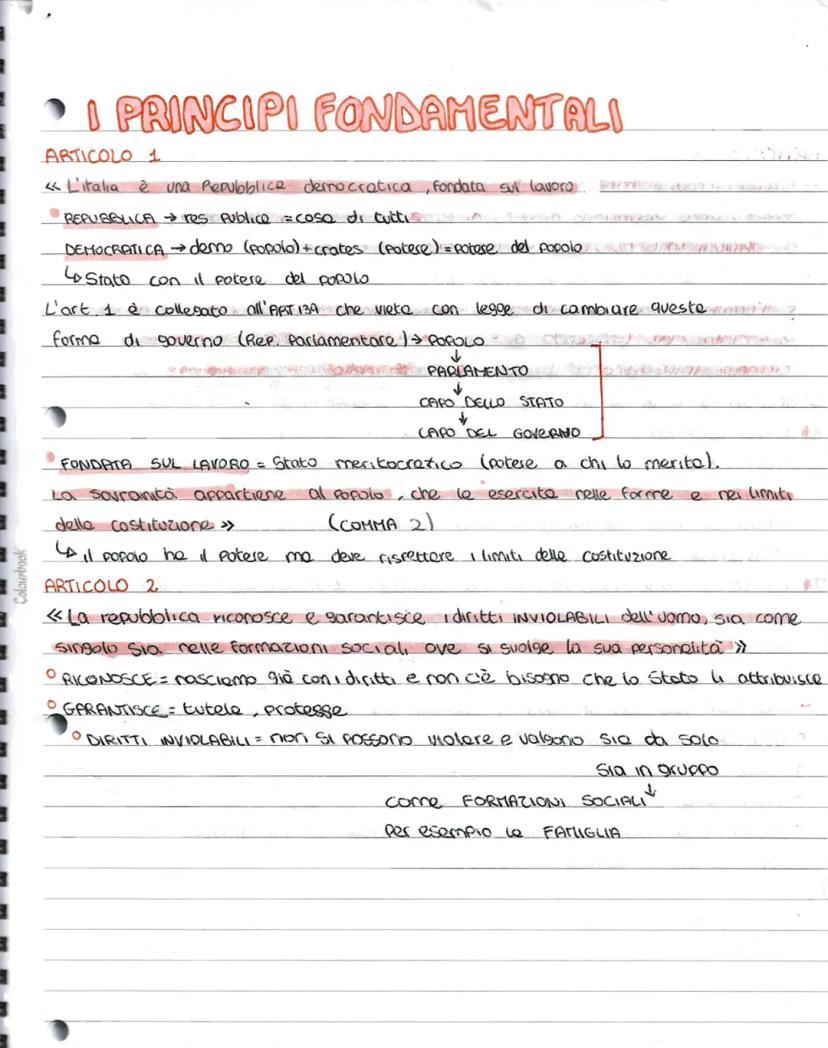 I PRINCIPI FONDAMENTALI
ARTICOLO 1
<< L'italia è una Repubblica democratica, fondata sul lavoro
REPUBBLICA → res publica = cosa di tutti
DEMOCRATICA → demo (popolo) + crates (potere) = potere del popolo
↳ Stato con il potere del popolo
L'art. 1 è collegato all'ART 139 che vieta con legge di cambiare questa
forma di governo (Rep. Parlamentare) → POPOLO
↓
PARLAMENTO
↓
CAPO DELLO STATO
↓
CAPO DEL GOVERNO
FONDATA SUL LAVORO = Stato meritocratico (potere a chi lo merita).
La sovranità appartiene al popolo, che la esercita nelle forme e nei limiti
della costituzione >> (COMMA 2)
↳ il popolo ha il potere ma deve rispettare i limiti della costituzione
ARTICOLO 2
<< La repubblica riconosce e garantisce i diritti INVIOLABILI dell'uomo, sia come
singolo sia nelle formazioni sociali, ove si svolge la sua personalità >>
° RICONOSCE = nasciamo già con i diritti e non c'è bisogno che lo Stato li attribuisce
° GARANTISCE = tutela, protegge
° DIRITTI INVIOLABILI = non si possono violare e valgono sia da solo
sia in gruppo
↓
come FORMAZIONI SOCIALI
per esempio la FAMIGLIA
Colourbook